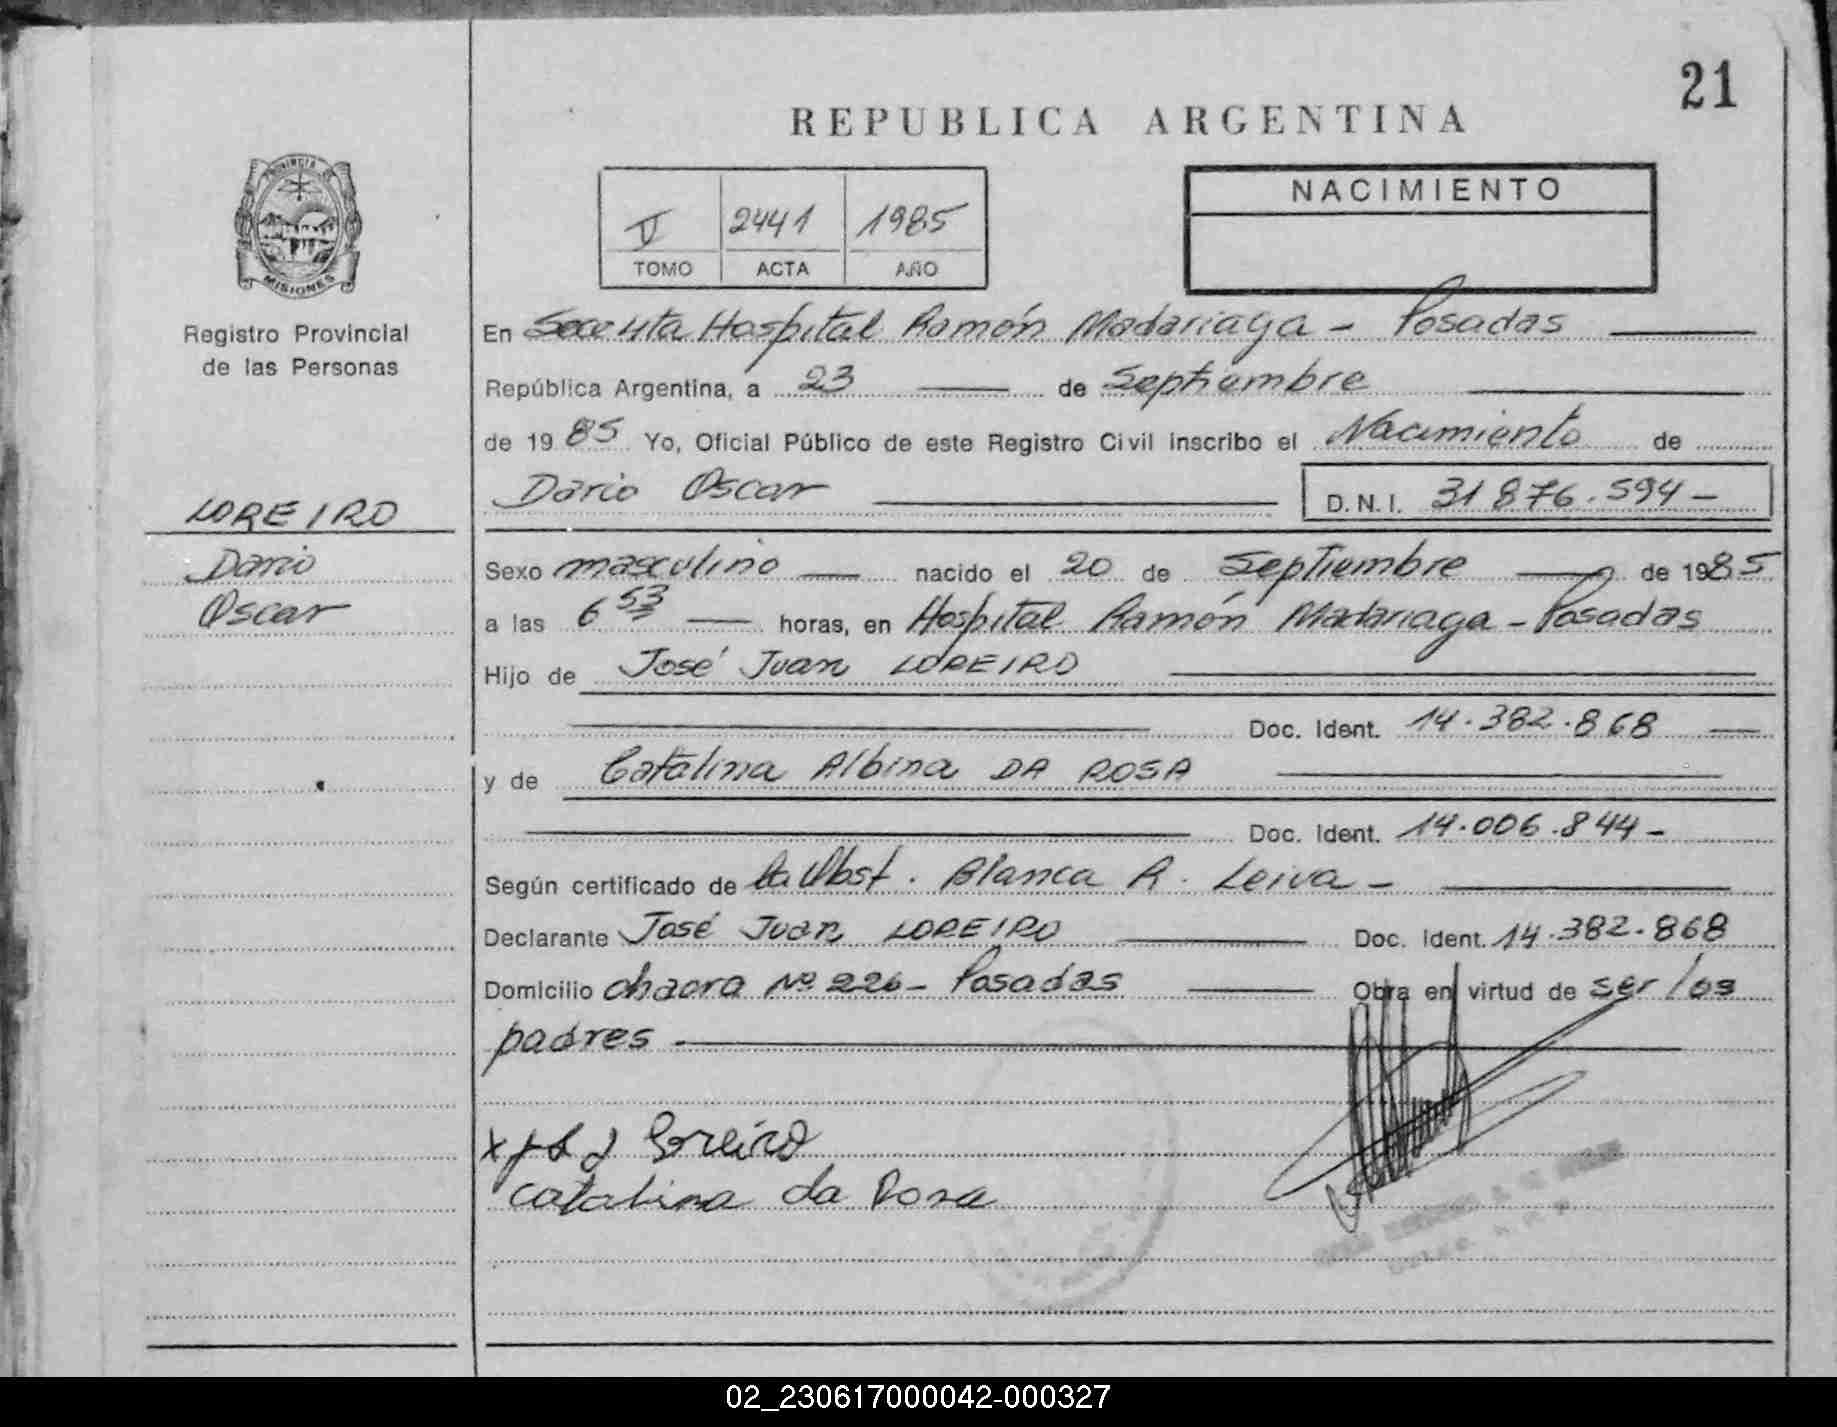 21
REPUBLICA ARGENTINA
PROVINCIA DE
MISIONES
Registro Provincial
de las Personas
V 2441 1985
TOMO ACTA AÑO
NACIMIENTO
En Hospital Ramón Madariaga - Posadas
República Argentina, a 23 de Septiembre
de 1985 Yo, Oficial Público de este Registro Civil inscribo el Nacimiento de
Dario Oscar D.N.I. 31 876.594 -
LOREIRO
Dario
Oscar
Sexo masculino nacido el 20 de Septiembre de 1985
a las 6 53 horas, en Hospital Ramón Madariaga - Posadas
Hijo de José Juan LOREIRO
Doc. Ident. 14.382.868
y de Catalina Albina DA ROSA
Doc. Ident. 14.006.844 -
Según certificado de la Obst. Blanca R. Leiva -
Declarante José Juan LOREIRO Doc. Ident. 14.382.868
Domicilio chacra Nº 226 - Posadas Obra en virtud de ser los
padres
Loreiro
Catalina da Rosa
02_230617000042-000327